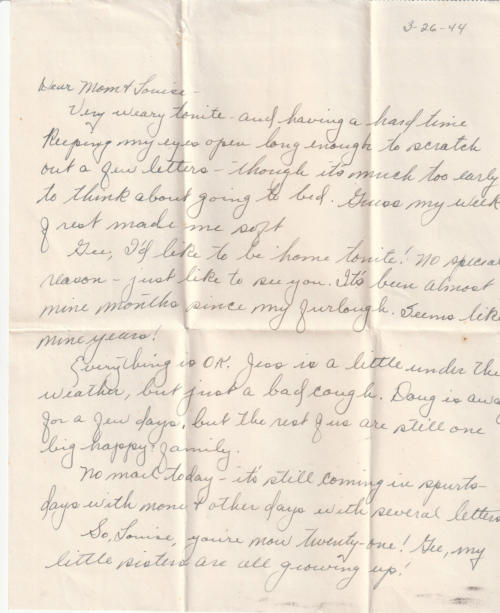 3-26-44
Dear Mom & Louise -
Very weary tonite - and having a hard time
keeping my eyes open long enough to scratch
out a few letters - though it's much too early
to think about going to bed. Guess my week
of rest made me soft
Gee, I'd like to be home tonite! No special
reason - just like to see you. It's been almost
nine months since my furlough. Seems like
nine years!
Everything is OK. Jess is a little under the
weather, but just a bad cough. Doug is away
for a few days, but the rest of us are still one
big happy? family.
No mail today - it's still coming in spurts -
days with none & other days with several letters
So, Louise, you're now twenty-one! Gee, my
little sisters are all growing up!